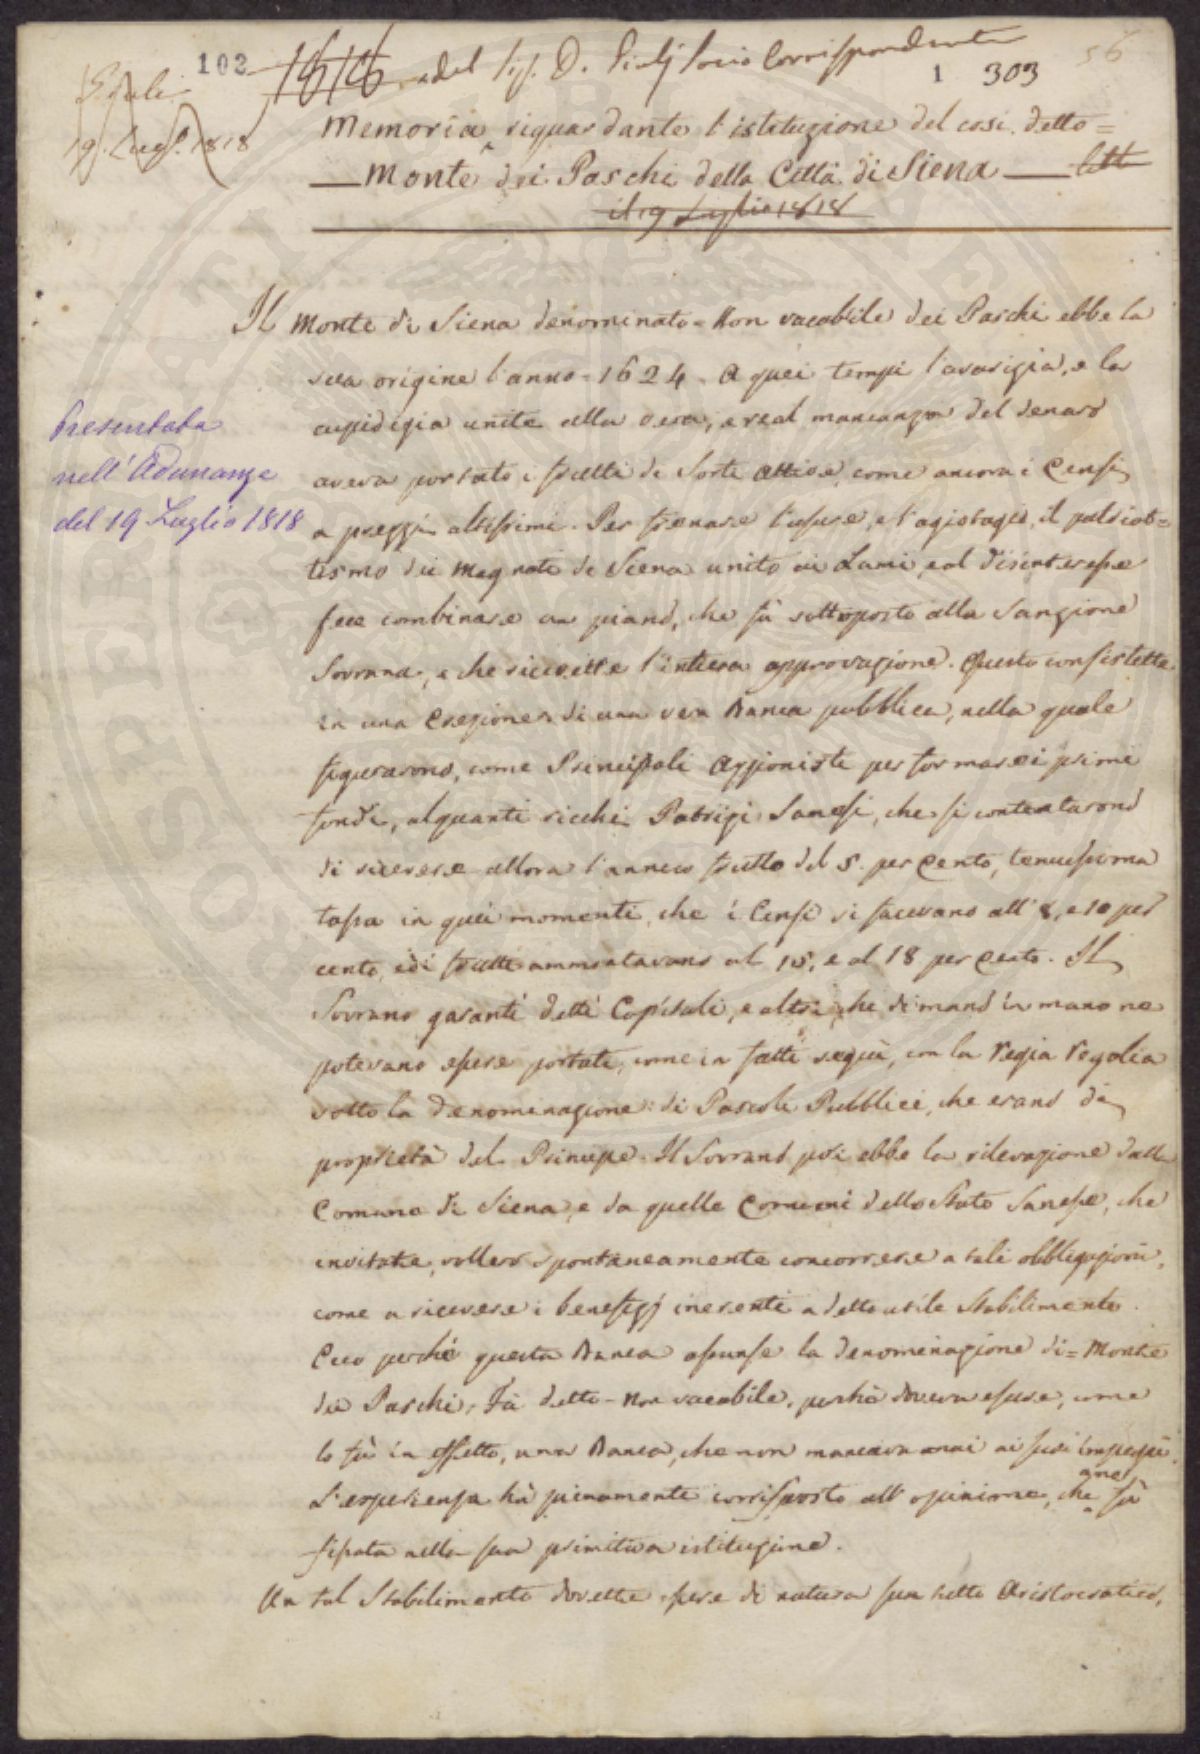 102
1 303
56
1818 del Sig. D. Socio Corrispondente
19. Lugl. 1818
Memoria riguardante l'istituzione del così detto =
Monte dei Paschi della Città di Siena
il 19 Luglio 1818
Presentata
nell'Adunanza
del 19 Luglio 1818
Il Monte di Siena denominato = Non vacabile dei Paschi ebbe la
sua origine l'anno = 1624. A quei tempi l'avarizia, e la
cupidigia unite alla vera, e real mancanza del denaro
aveva portato i frutti di Sorti Attive, come ancora i Censi
a prezzi altissimi. Per frenare l'usure, e l'agiotagio, il patriot=
tismo dei Magnati di Siena unito ai Lumi, e al disinteresse
fece combinare un piano, che fù sottoposto alla Sanzione
Sovrana, e che ricevette l'intiera approvazione. Questo consistette
in una Erezione di una vera Banca pubblica, nella quale
figurarono, come Principali Azzionisti per formare i primi
fondi, alquanti ricchi Patrizi Sanesi, che si contentarono
di ricevere allora l'annuo frutto del 5. per Cento, tenuissima
tassa in quei momenti, che i Censi si facevano all' 8, e 10 per
cento, ed i frutti ammontavano al 15, e al 18 per Cento. Il
Sovrano garantì detti Capitali, e altri, che di mano in mano ne
potevano essere portati, come in fatti seguì, con la Regia Regalia
sotto la denominazione di Pascoli Pubblici, che erano di
proprietà del Principe. Il Sovrano poi ebbe la rilevazione dalla
Comune di Siena, e da quelle Comuni dello Stato Sanese, che
invitate, vollero spontaneamente concorrere a tali obbligazioni,
come a ricevere i benefizj inerenti a detto utile Stabilimento.
Ecco perchè questa Banca assunse la denominazione di = Monte
dei Paschi, Fù detto = Non vacabile, perchè doveva essere, come
lo fù in effetto, una Banca, che non mancava mai ai suoi impegni.
L'esperienza hà pienamente corrisposto all'opinione, che ane fù
fissata nella sua primitiva istituzione.
Un tal Stabilimento dovette essere di natura sua tutto Aristocratico,